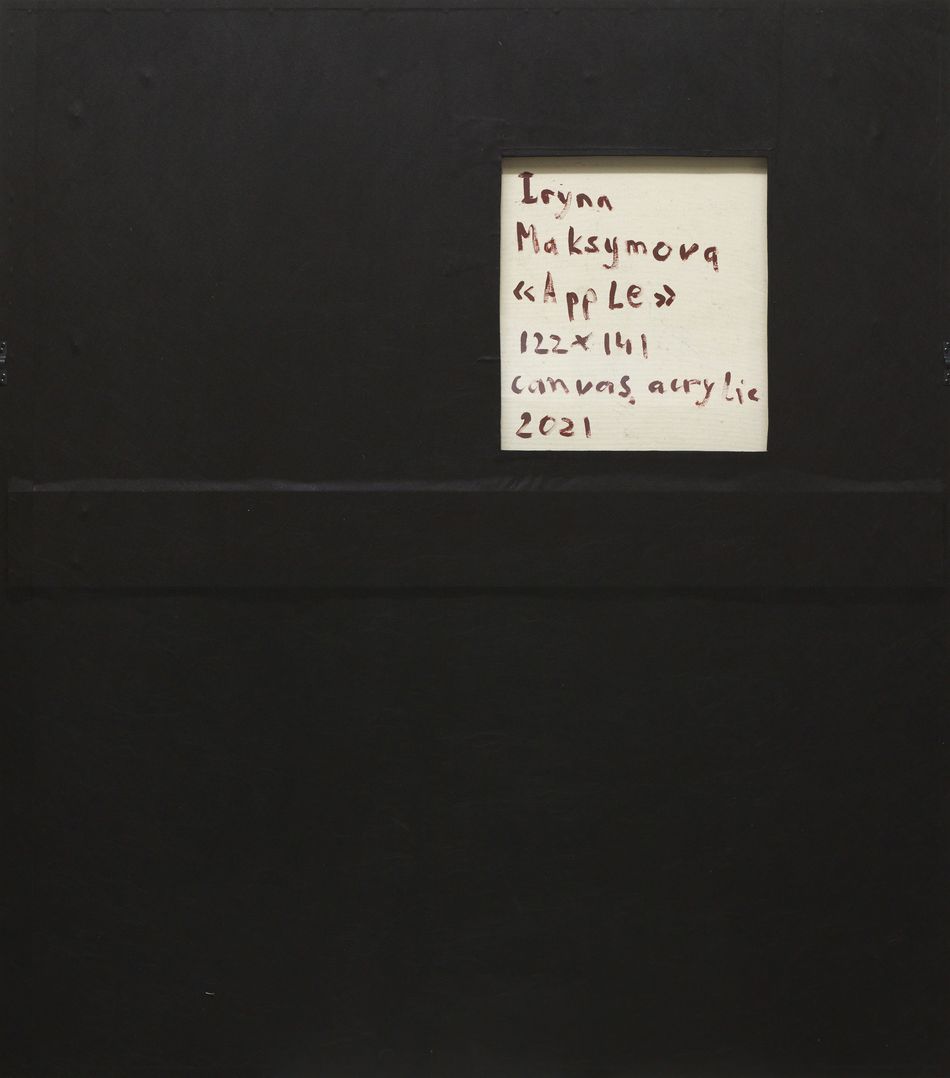 Iryna
Maksymova
«Apple»
122×141
canvas, acrylic
2021